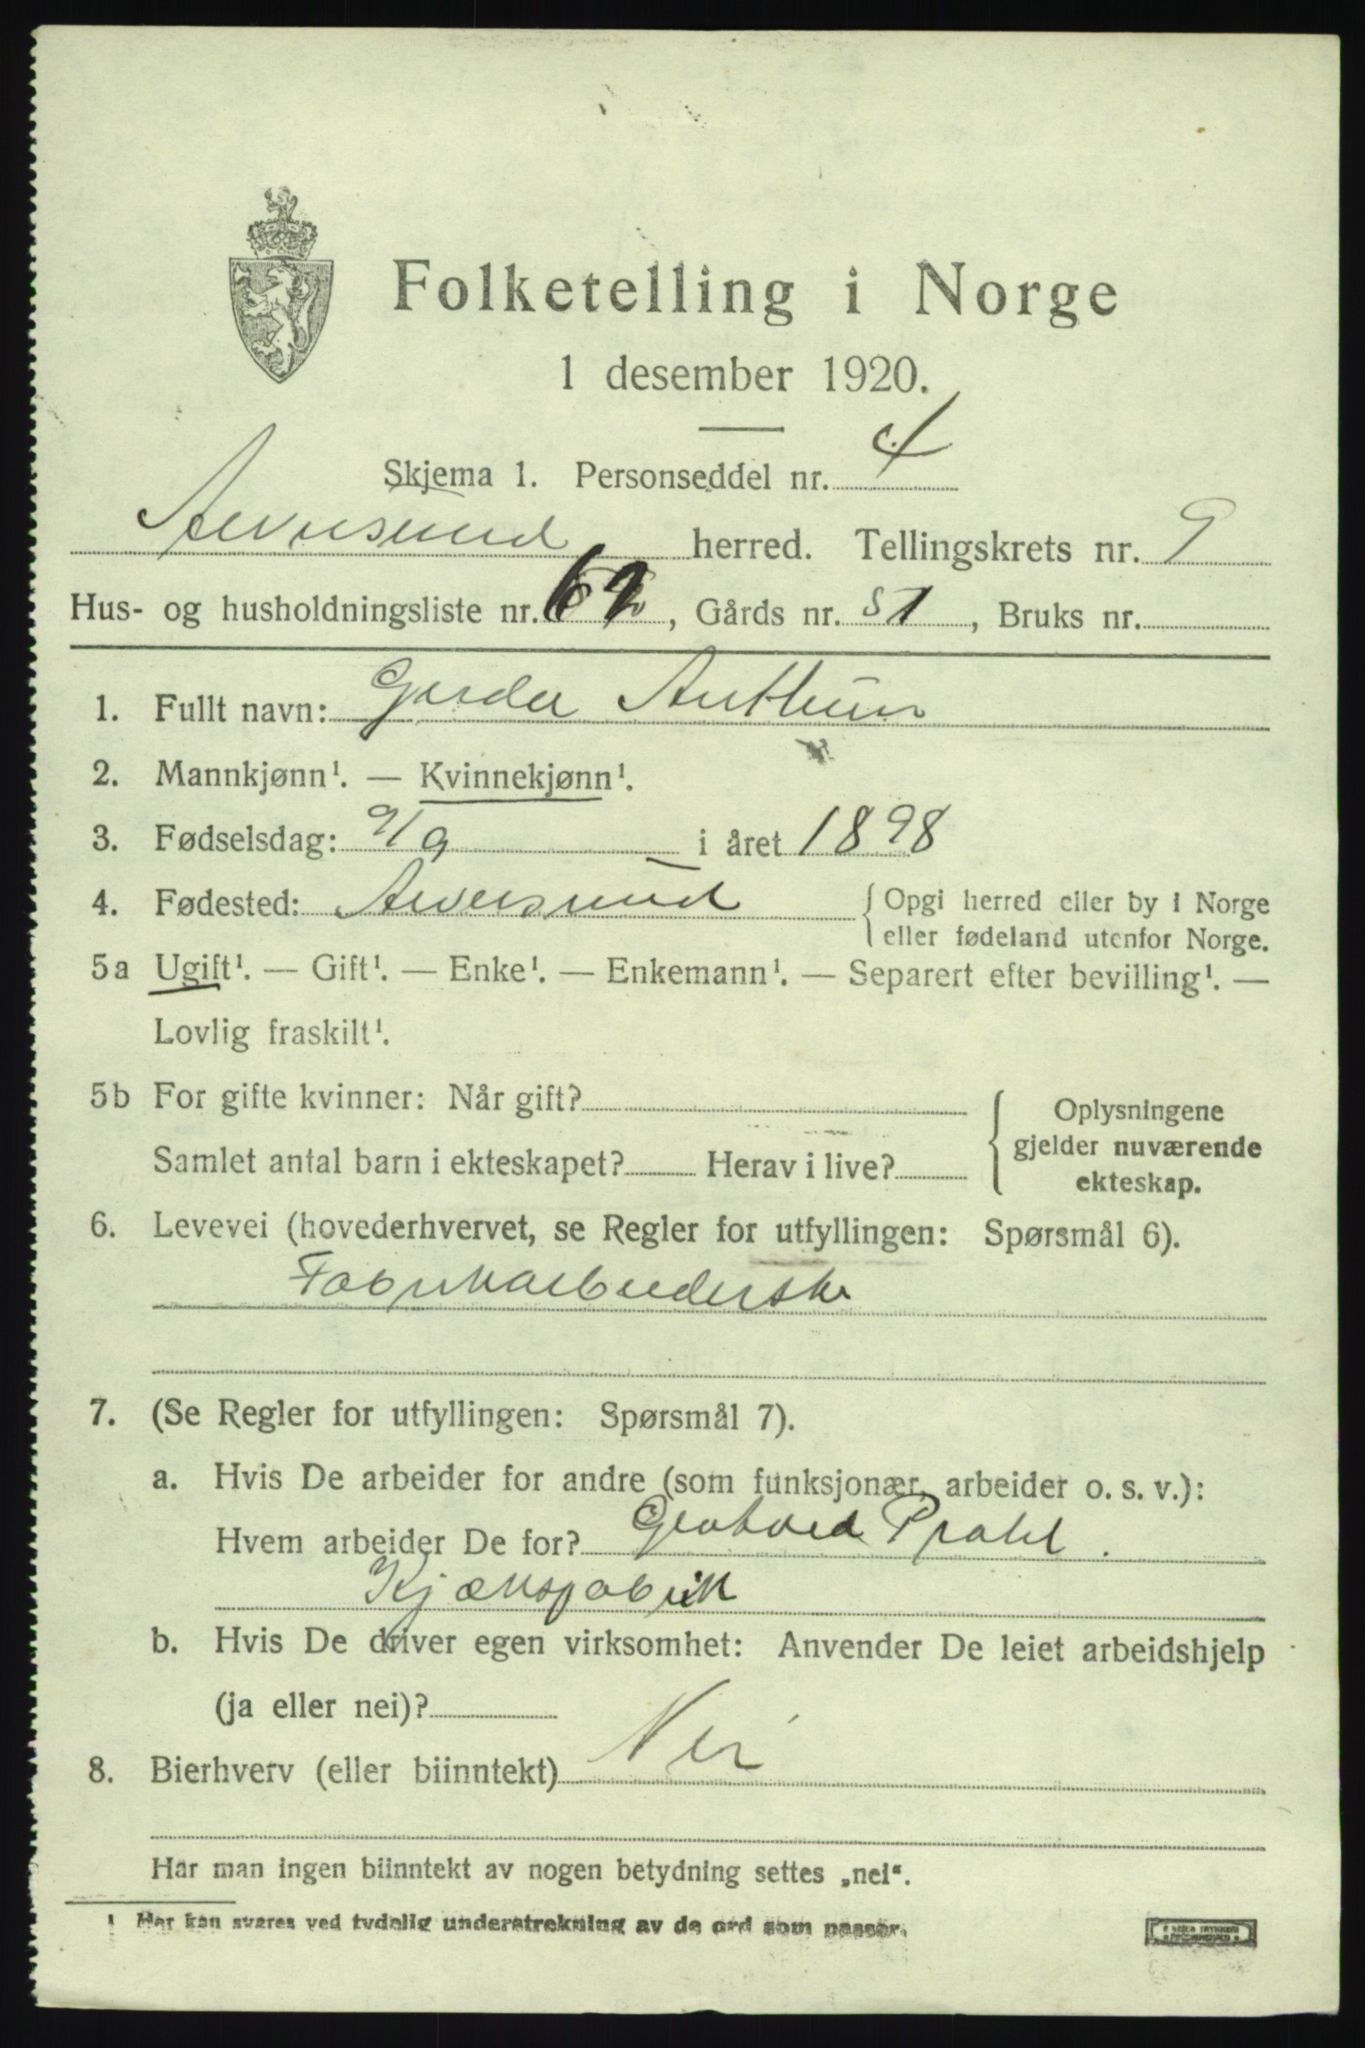 Folketelling i Norge
1 desember 1920.
Skjema 1. Personseddel nr. 4
Alversund herred. Tellingskrets nr. 9
Hus- og husholdningsliste nr. 62, Gårds nr. 51, Bruks nr.
1. Fullt navn: Gerda Anthun
2. Mannkjønn¹. — Kvinnekjønn¹.
3. Fødselsdag: 9/9 i året 1898
4. Fødested: Alversund { Opgi herred eller by i Norge
eller fødeland utenfor Norge.
5a Ugift¹. — Gift¹. — Enke¹. — Enkemann¹. — Separert efter bevilling¹. —
Lovlig fraskilt¹.
5b For gifte kvinner: Når gift?
Samlet antal barn i ekteskapet? Herav i live?
{ Oplysningene
gjelder nuværende
ekteskap.
6. Levevei (hovederhvervet, se Regler for utfyllingen: Spørsmål 6).
Fabrikarbeiderske
7. (Se Regler for utfyllingen: Spørsmål 7).
a. Hvis De arbeider for andre (som funksjonær, arbeider o. s. v.):
Hvem arbeider De for? Prahl.
Kjæksfabrik
b. Hvis De driver egen virksomhet: Anvender De leiet arbeidshjelp
(ja eller nei)?
8. Bierhverv (eller biinntekt) Nei
Har man ingen biinntekt av nogen betydning settes „nei“.
¹ Her kan svares ved tydelig understrekning av de ord som passer.